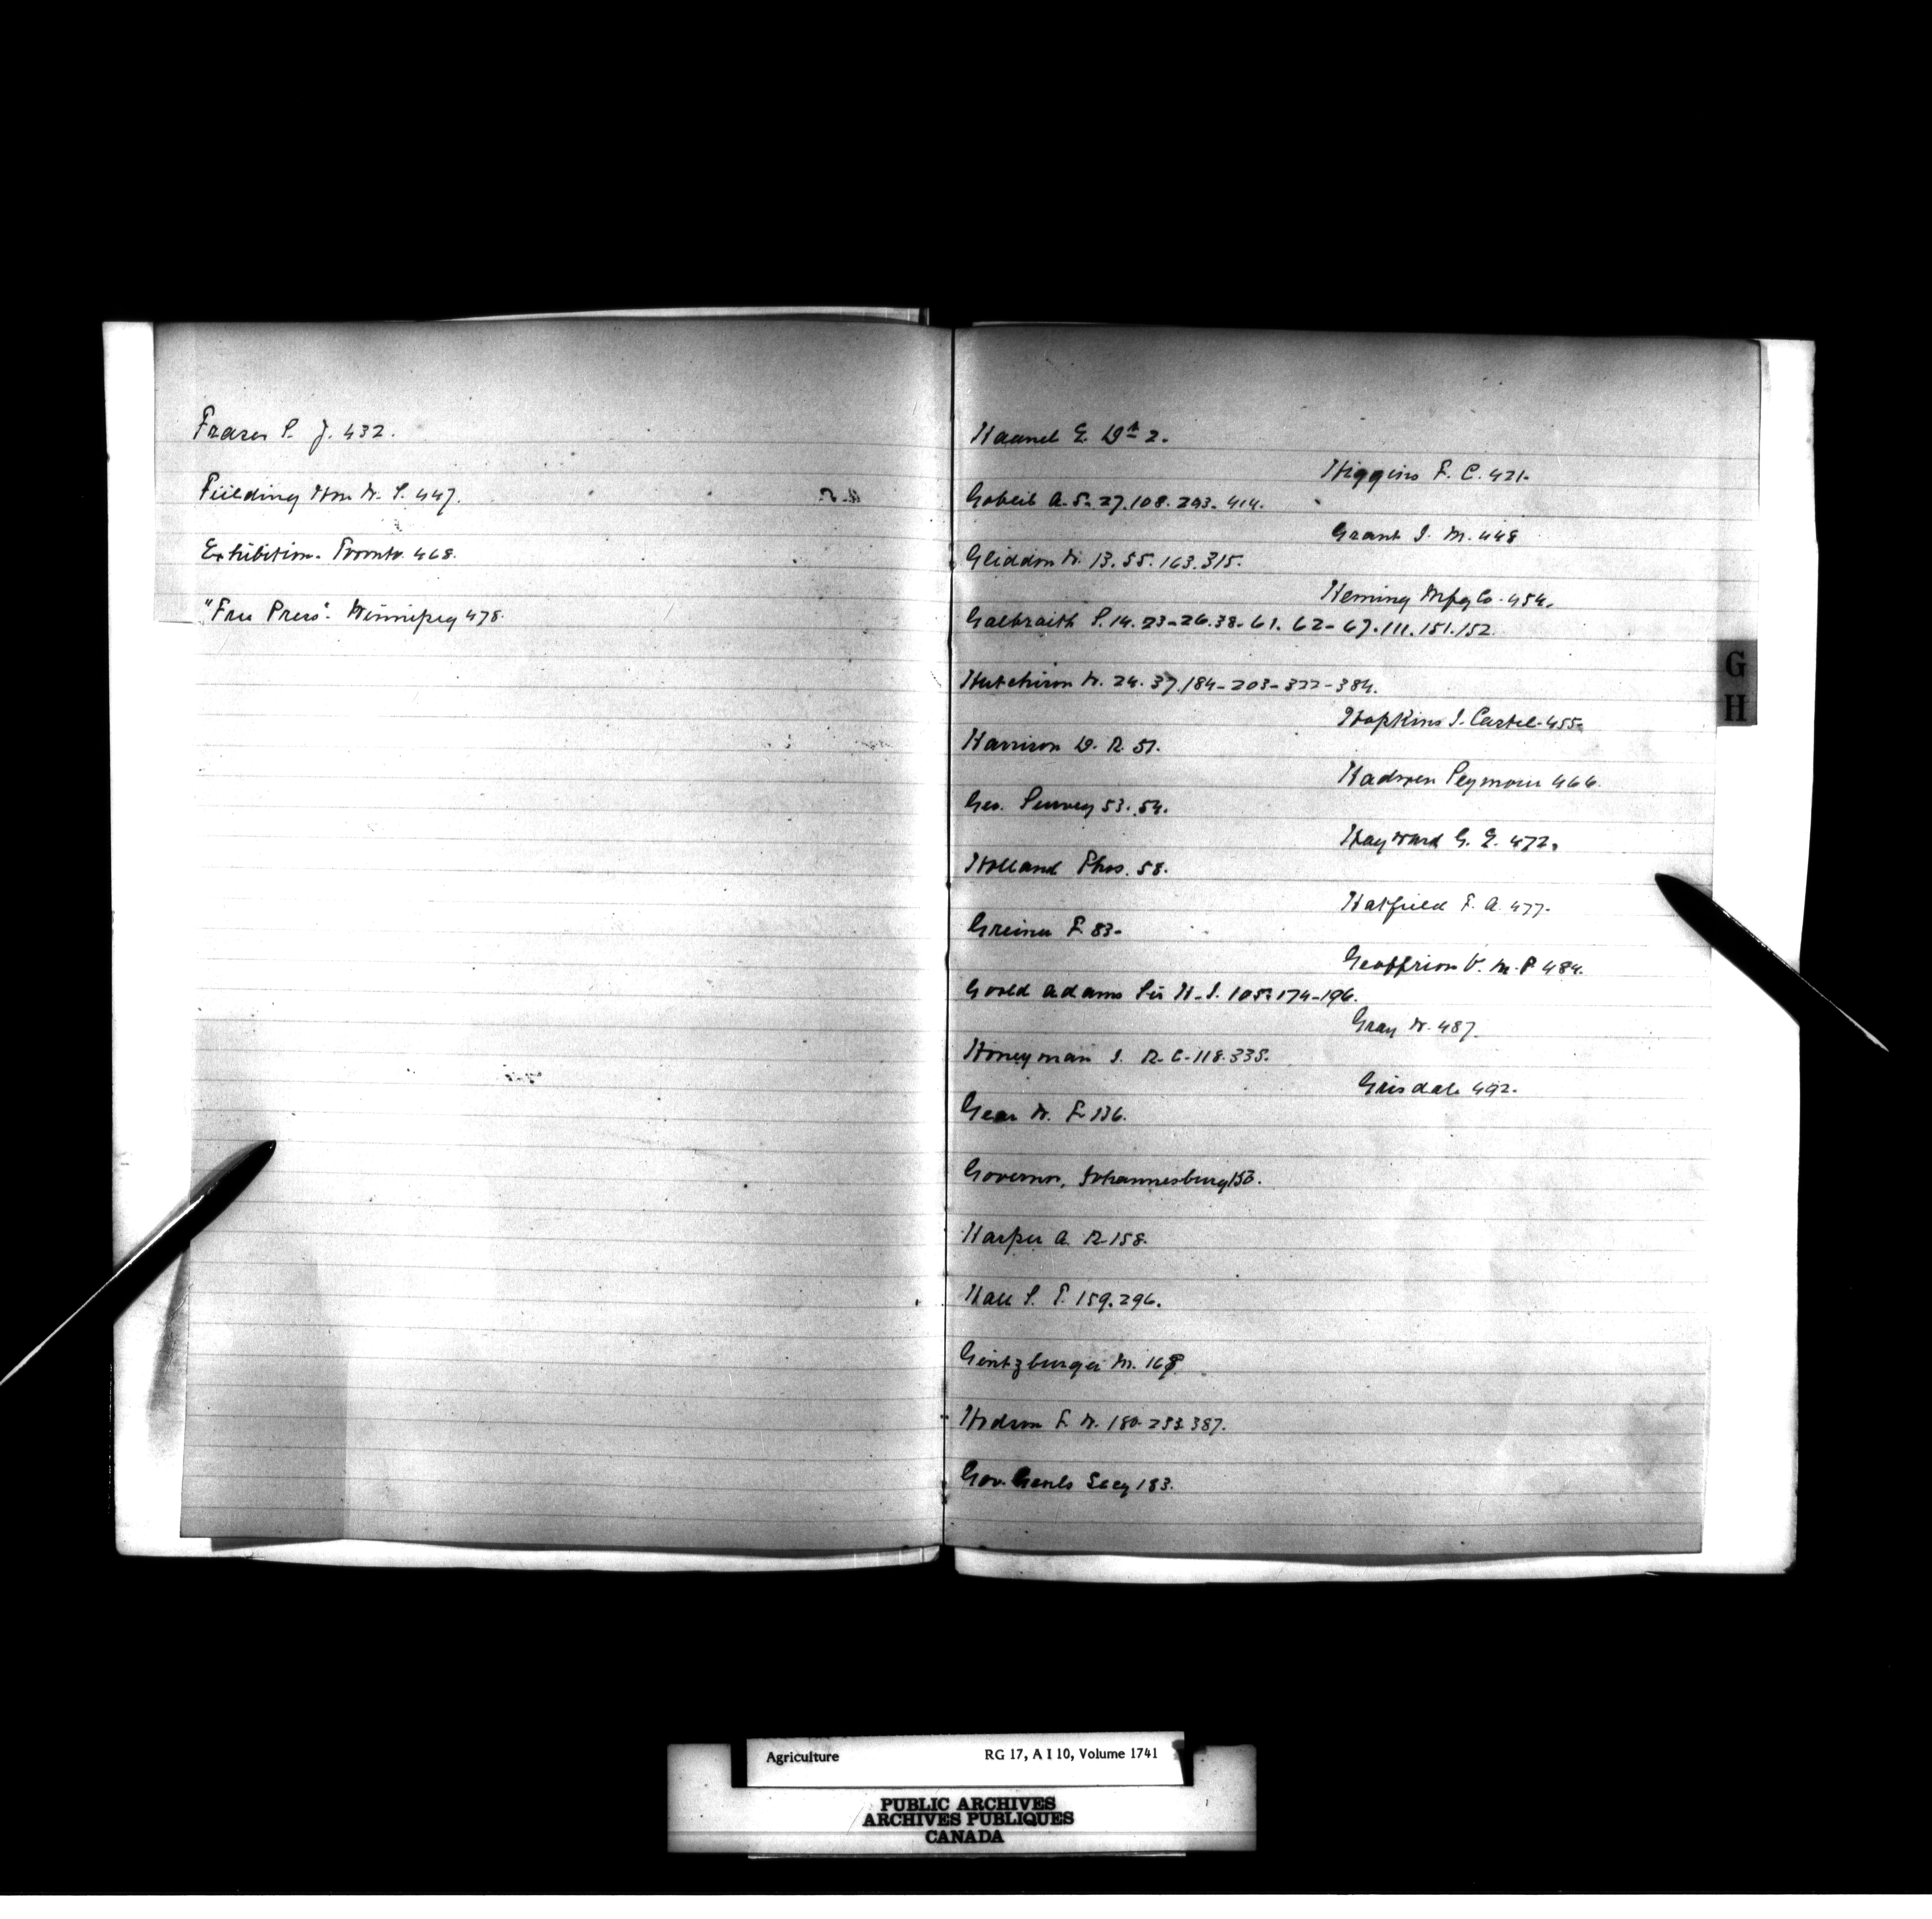 Fraser S. J. 432.
Fielding Hon W. S. 447.
Exhibition. Toronto. 468.
"Free Press". Winnipeg 478.
Haanel E. Dr 2.
Gobeil A. 5. 27. 108. 293. 414.
Gliddon W. 13. 55. 163. 315.
Galbraith S. 14. 23-26. 38. 61. 62-67. 111. 151. 152.
Hutchison W. 24. 37. 184-203-322-384.
Harrison D. R. 51.
Geo. Survey 53. 54.
Holland Thos. 58.
Greiner F. 83.
Goold Adams Sir H. J. 105. 174-196.
Honeyman J. R. C. 118. 335.
Gear W. F. 136.
Governor, Johannesburg 153.
Harper A. R. 158.
Hall S. T. 159. 296.
Gintzburger M. 168
Hodson F. W. 180. 233. 387.
Gov. Genls Secy 183.
Higgins F. C. 421.
Grant J. M. 448
Heming Mfg Co. 454.
Hopkins J. Castell 455.
Hadwen Seymour 466.
Hayward G. E. 472.
Hatfield F. A. 477.
Geoffrion V. M. P. 484.
Gray W. 487.
Grisdale 492.
G
H
Agriculture RG 17, A I 10, Volume 1741
PUBLIC ARCHIVES
ARCHIVES PUBLIQUES
CANADA